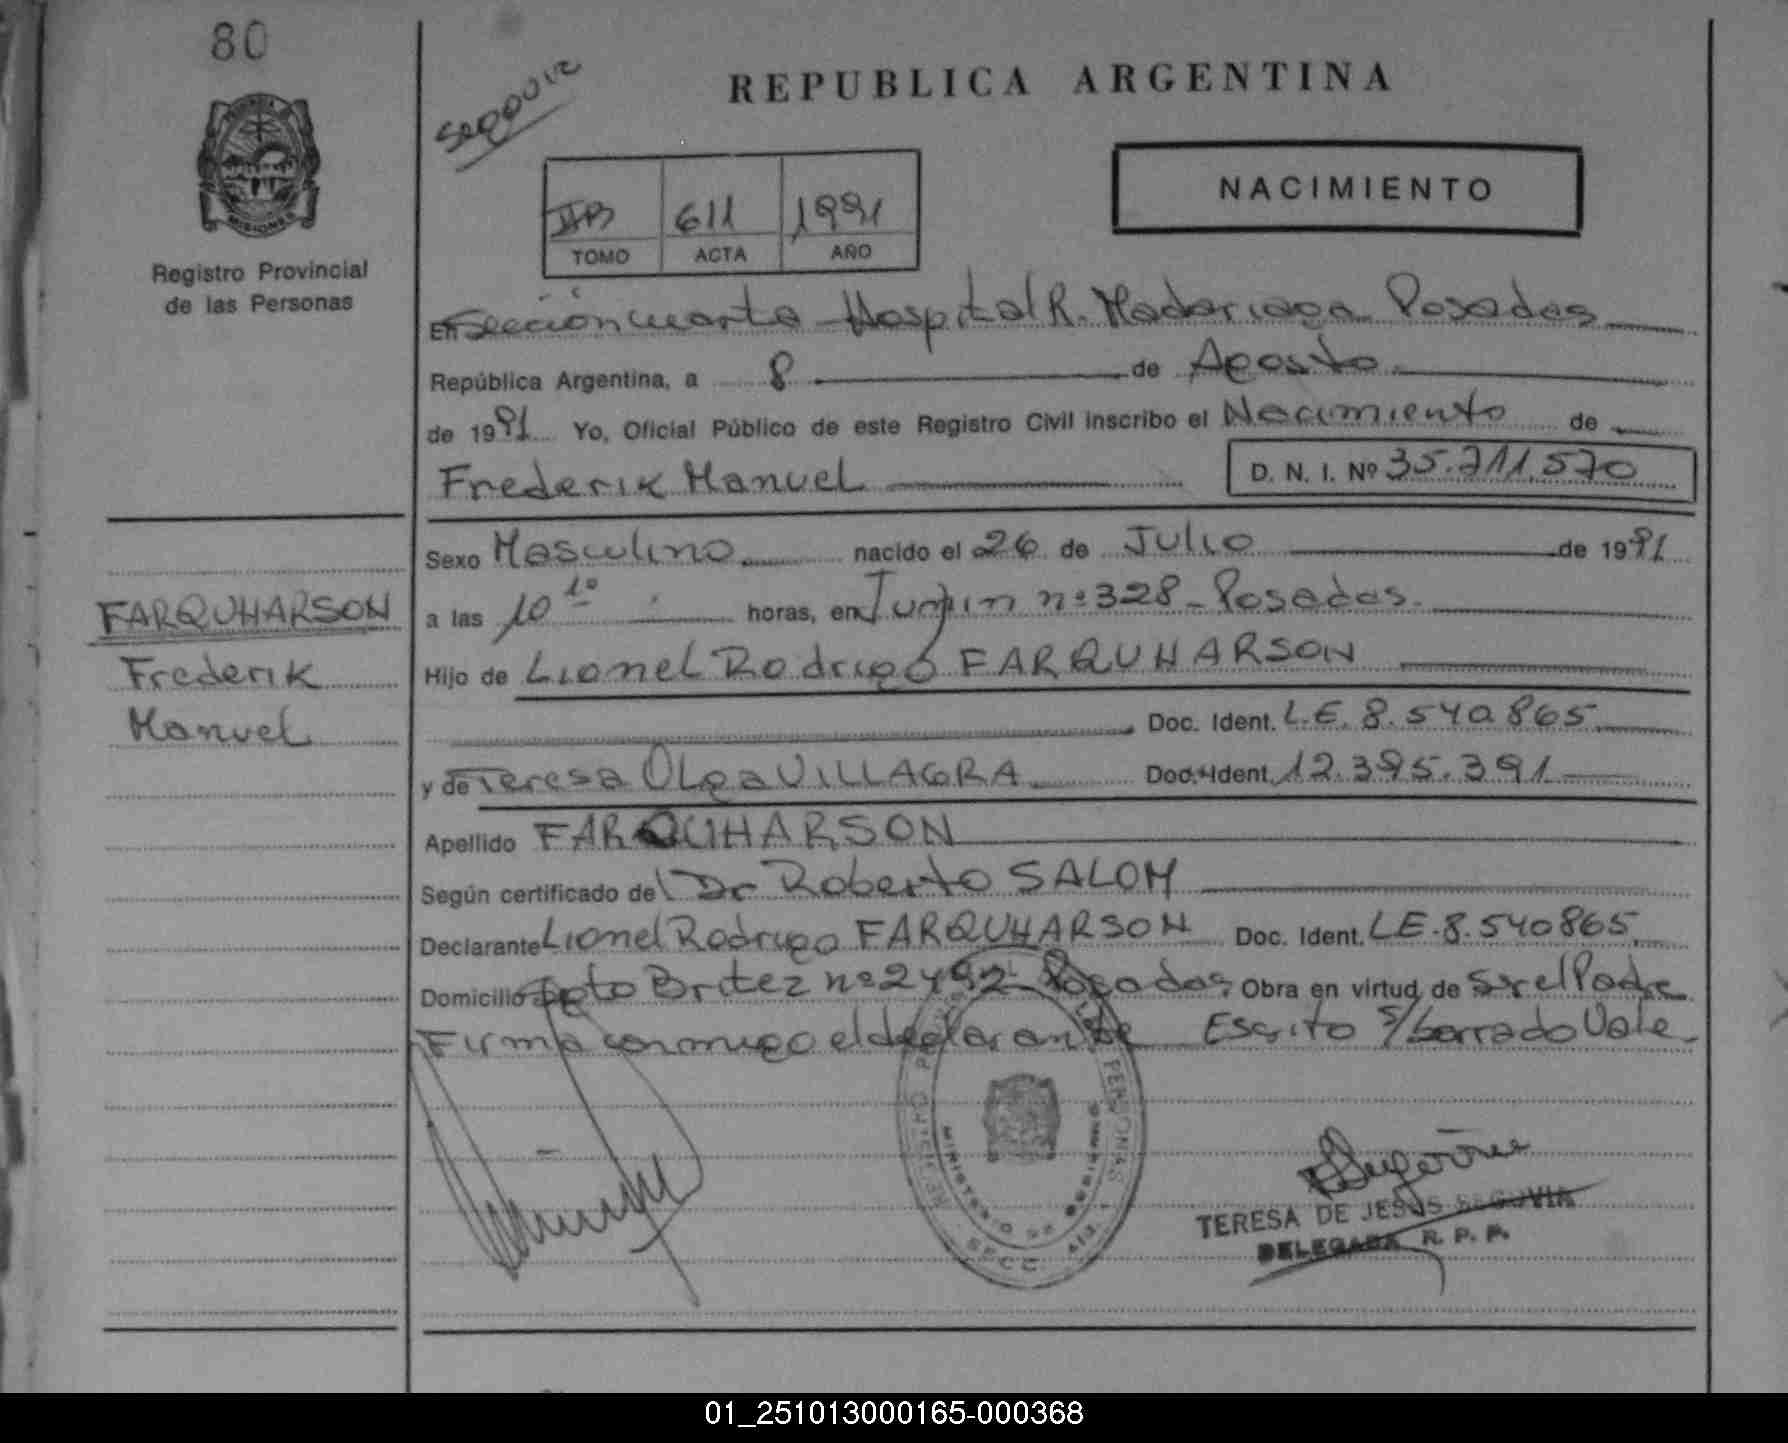 80
Segovia
REPUBLICA ARGENTINA
NACIMIENTO
IIB 611 1991
TOMO ACTA AÑO
MISIONES
Registro Provincial
de las Personas
En Sección cuarta Hospital R. Madariaga Posadas
República Argentina, a 8 de Agosto
de 1991 Yo, Oficial Público de este Registro Civil inscribo el Nacimiento de
Frederik Manuel D. N. I. Nº 35.711.570
Sexo Masculino nacido el 26 de Julio de 1991
a las 10 10 horas, en Junin nº 328 - Posadas.
Hijo de Lionel Rodrigo FARQUHARSON
Doc. Ident. L.E. 8.540.865
y de Teresa Olga VILLAGRA Doc. Ident. 12.395.391
Apellido FARQUHARSON
Según certificado del Dr Roberto SALOM
Declarante Lionel Rodrigo FARQUHARSON Doc. Ident. LE. 8.540865
Domicilio Sgto Britez nº 2492 Posadas Obra en virtud de Ser el Padre
Firma conmigo el declarante Escrito s/borrado Vale
FARQUHARSON
Frederik
Manuel
TERESA DE JESUS SEGOVIA
DELEGADA R. P. P.
01_251013000165-000368